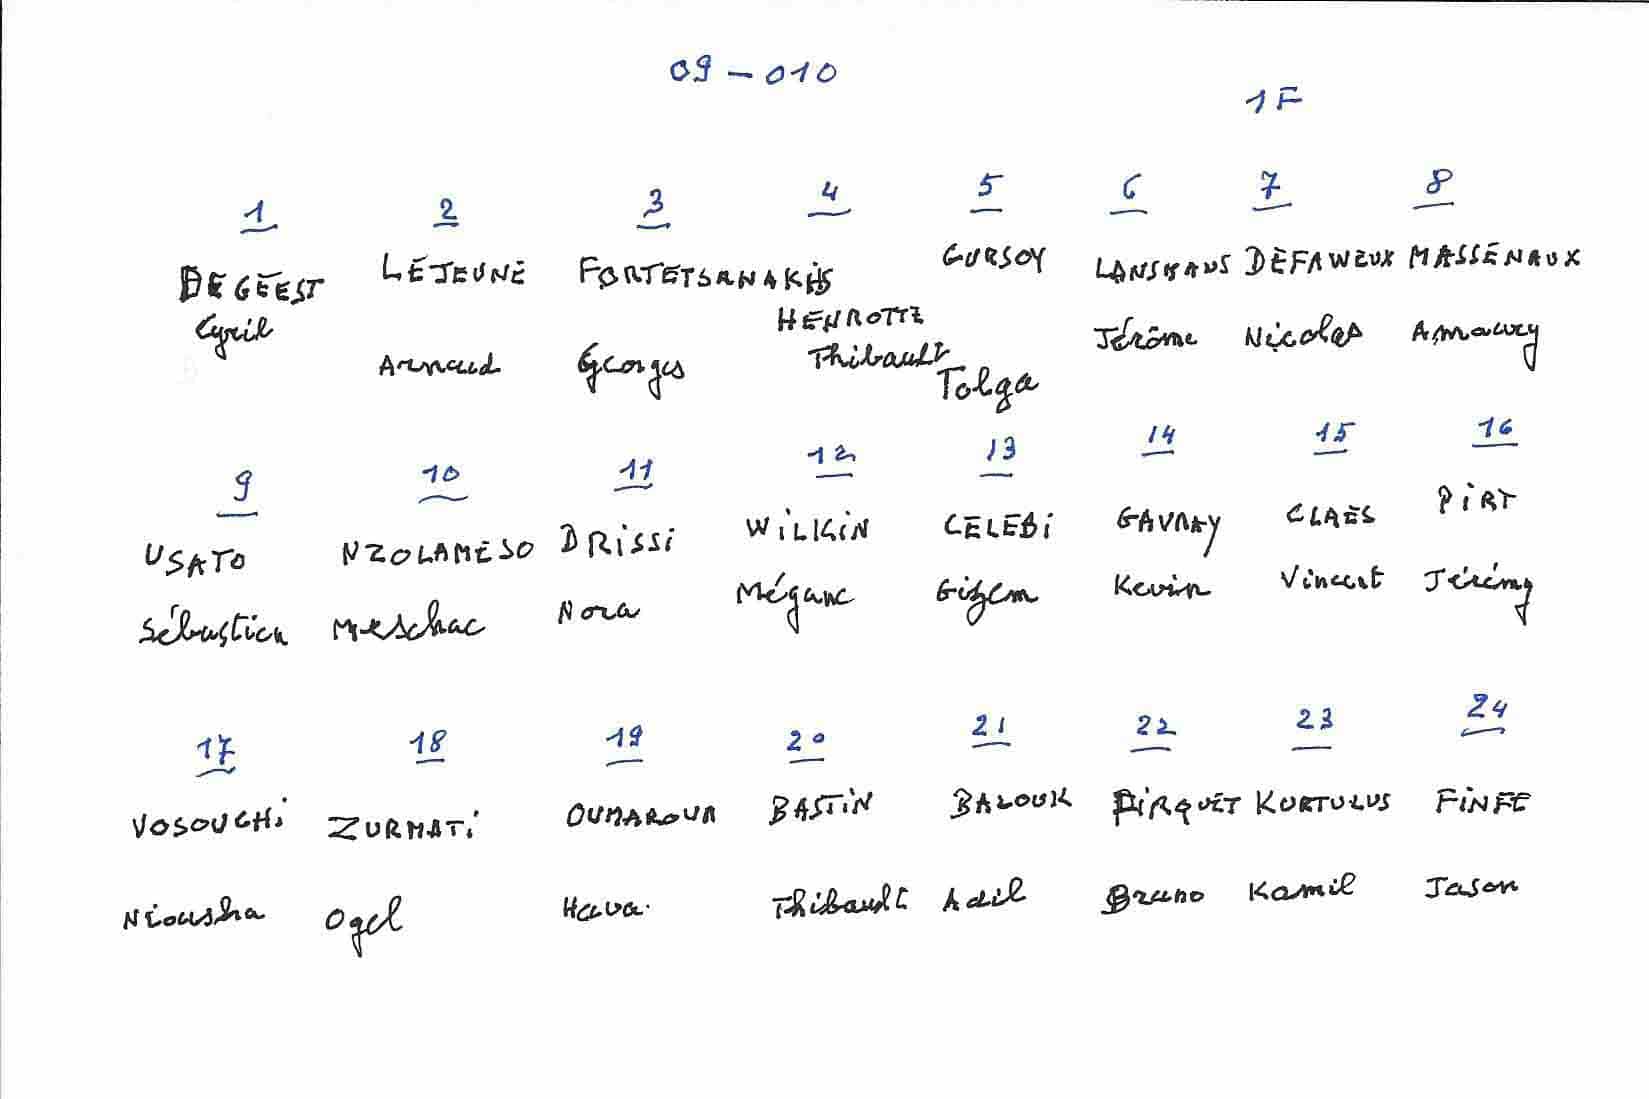 09-010
1F
1 2 3 4 5 6 7 8
DEGEEST LEJEUNE FORTETSANAKIS HENROTTE GURSOY LANSMANS DEFAWEUX MASSENAUX
Cyril Arnaud Georges Thibault Tolga Jérôme Nicolas Amaury
9 10 11 12 13 14 15 16
USATO NZOLAMESO DRISSI WILKIN CELEBI GAVRAY CLAES PIRT
Sébastien Meschac Nora Mégane Gizem Kevin Vincent Jérémy
17 18 19 20 21 22 23 24
VOSOUGHI ZURMATI OUMAROVA BASTIN BALOUK PIRQUET KURTULUS FINFE
Niousha Ogel Hava. Thibault Adil Bruno Kamil Jason